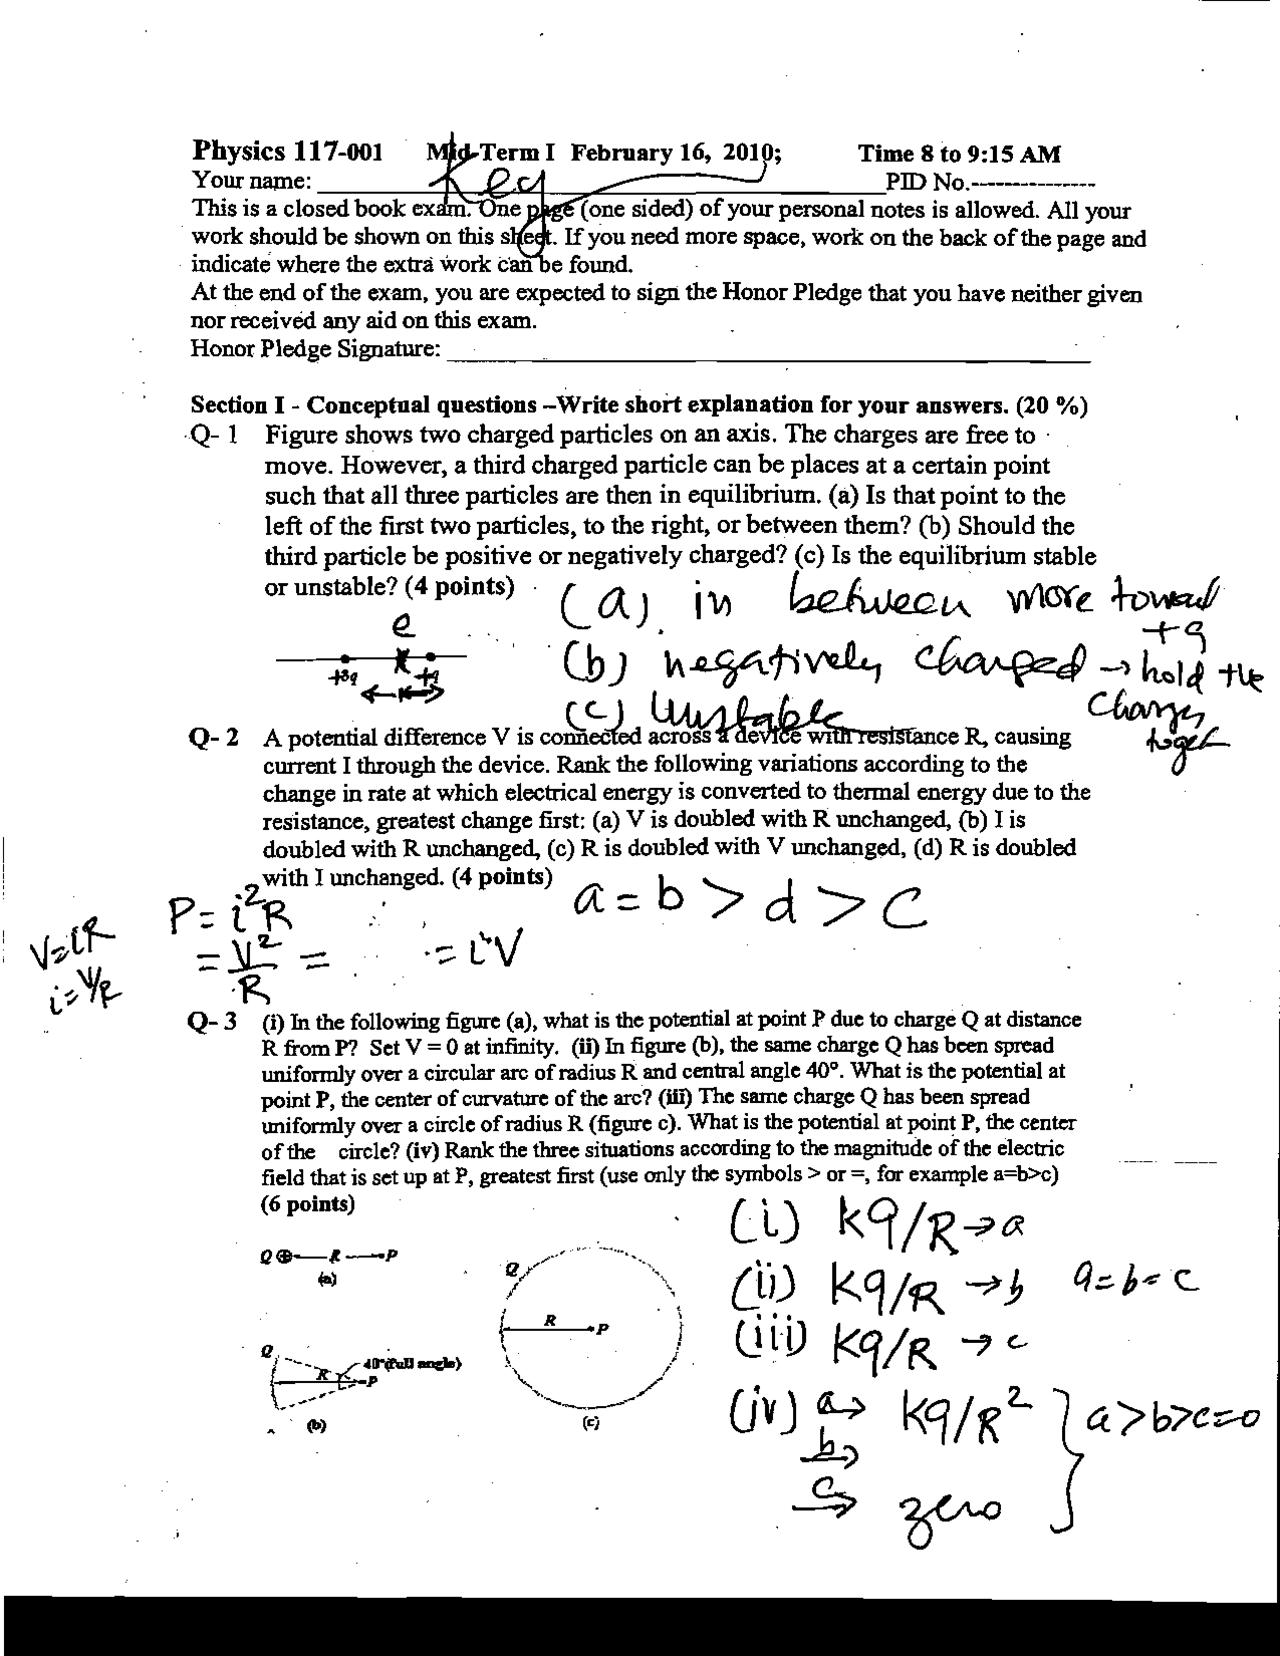 Physics 117-001 Mid-Term I February 16, 2010; Time 8 to 9:15 AM
Your name: Key PID No.---------------
This is a closed book exam. One page (one sided) of your personal notes is allowed. All your
work should be shown on this sheet. If you need more space, work on the back of the page and
indicate where the extra work can be found.
At the end of the exam, you are expected to sign the Honor Pledge that you have neither given
nor received any aid on this exam.
Honor Pledge Signature:
Section I - Conceptual questions –Write short explanation for your answers. (20 %)
Q- 1 Figure shows two charged particles on an axis. The charges are free to
move. However, a third charged particle can be places at a certain point
such that all three particles are then in equilibrium. (a) Is that point to the
left of the first two particles, to the right, or between them? (b) Should the
third particle be positive or negatively charged? (c) Is the equilibrium stable
or unstable? (4 points)
(a) in between more toward
+q
e
+3q +q
(b) negatively charged → hold the
charges
(c) Unstable
Q- 2 A potential difference V is connected across a device with resistance R, causing
current I through the device. Rank the following variations according to the
change in rate at which electrical energy is converted to thermal energy due to the
resistance, greatest change first: (a) V is doubled with R unchanged, (b) I is
doubled with R unchanged, (c) R is doubled with V unchanged, (d) R is doubled
with I unchanged. (4 points)
a = b > d > c
P = i²R
V=iR
= V²/R = = iV
i=V/R
Q- 3 (i) In the following figure (a), what is the potential at point P due to charge Q at distance
R from P? Set V = 0 at infinity. (ii) In figure (b), the same charge Q has been spread
uniformly over a circular arc of radius R and central angle 40°. What is the potential at
point P, the center of curvature of the arc? (iii) The same charge Q has been spread
uniformly over a circle of radius R (figure c). What is the potential at point P, the center
of the circle? (iv) Rank the three situations according to the magnitude of the electric
field that is set up at P, greatest first (use only the symbols > or =, for example a=b>c)
(6 points)
(i) kq/R → a
Q R P
(a)
(ii) kq/R → b a = b = c
Q
R P
(iii) kq/R → c
Q
40° (full angle)
R P
(b)
(c)
(iv) a → kq/R² } a > b > c = 0
b →
c → zero